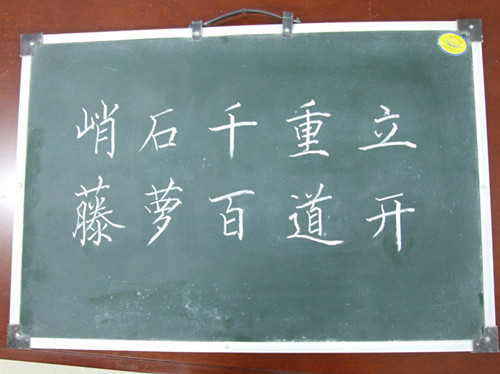 峭石千重立
藤萝百道开